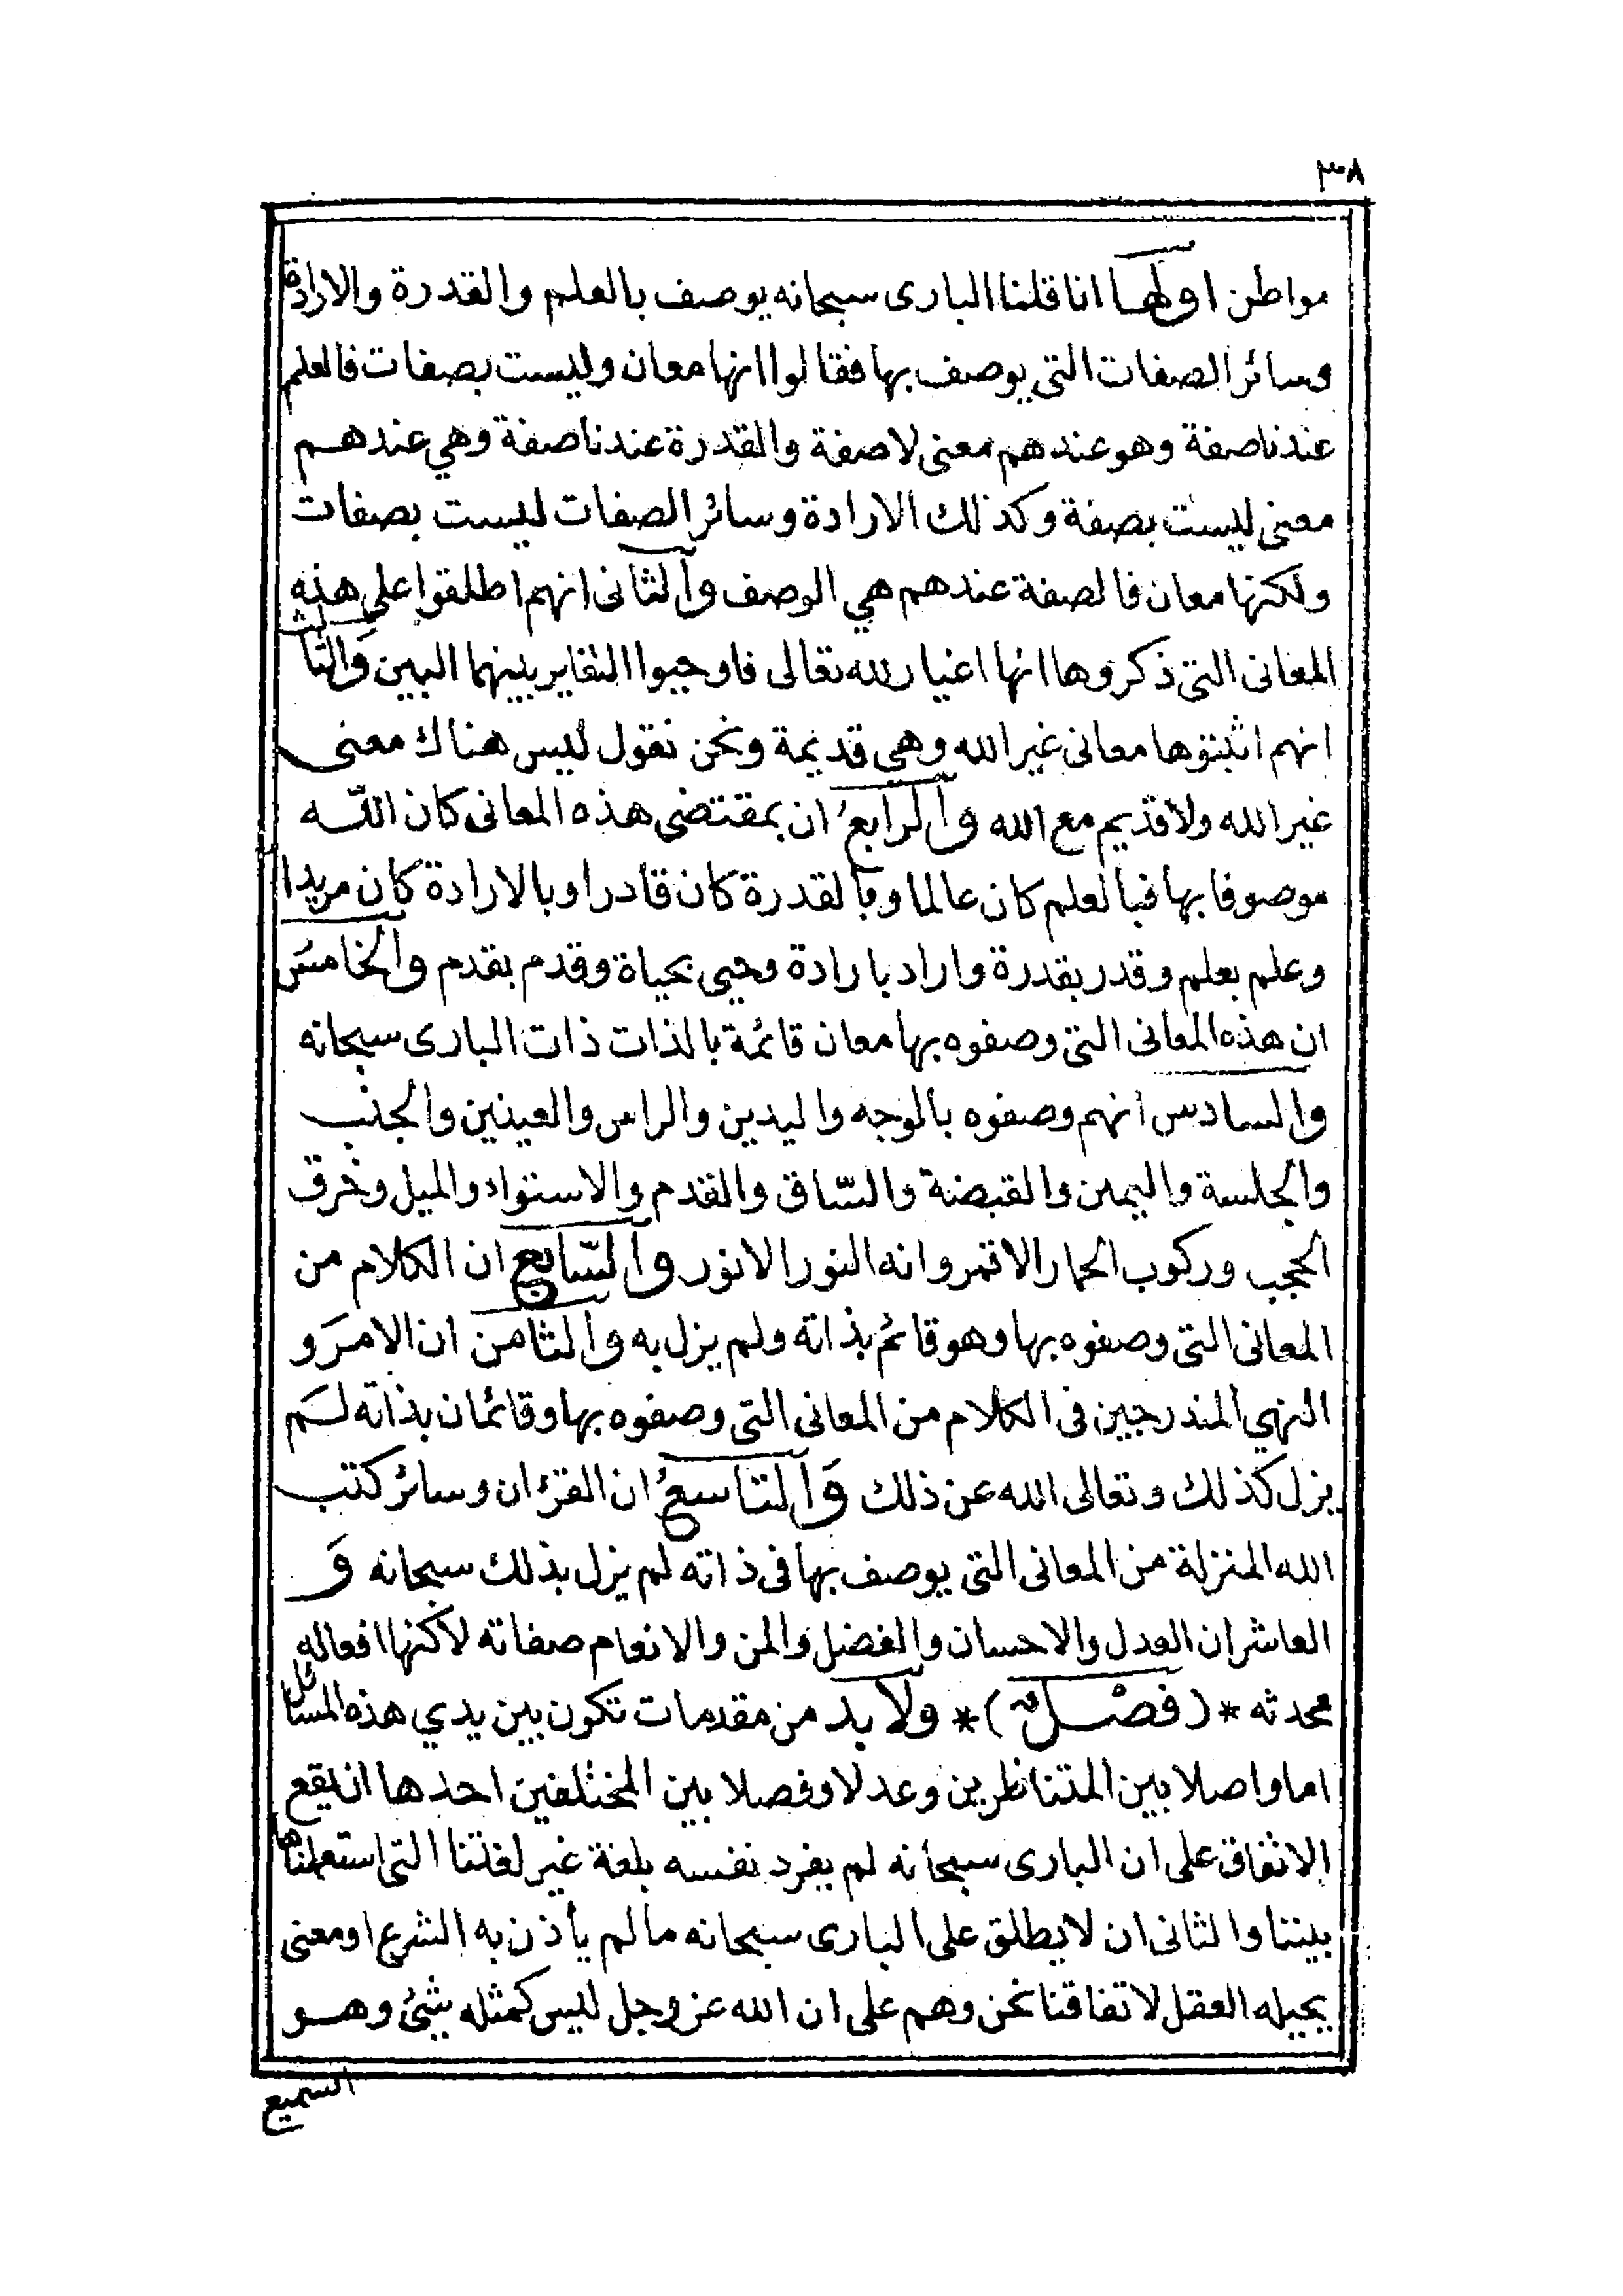 ٣٨
مواطن اولها انا قلنا البارى سبحانه يوصف بالعلم والقدرة والارادة
وسائر الصفات التى يوصف بها فقالوا انها معان وليست بصفات فالعلم
عندنا صفة وهو عندهم معنى لا صفة والقدرة عندنا صفة وهي عندهم
معنى ليست بصفة وكذلك الارادة وسائر الصفات ليست بصفات
ولكنها معان فالصفة عندهم هي الوصف والثانى انهم اطلقوا على هذه
المعانى التى ذكروها انها اغيار لله تعالى فاوجبوا التغاير بينهما البين والثالث
انهم اثبتوها معانى غير الله وهى قديمة ونحن نقول ليس هناك معنى
غير الله ولا قديم مع الله والرابع ان بمقتضى هذه المعانى كان الله
موصوفا بها فبالعلم كان عالما وبالقدرة كان قادرا وبالارادة كان مريدا
وعلم بعلم وقدر بقدرة واراد بارادة وحيى بحياة وقدم بقدم والخامس
ان هذه المعانى التى وصفوه بها معان قائمة بالذات ذات البارى سبحانه
والسادس انهم وصفوه بالوجه واليدين والراس والعينين والجنب
والجلسة واليمين والقبضة والسّاق والقدم والاستواء والميل وخرق
الحجب وركوب الحمار الاقمر وانه النور الانور والسّابع ان الكلام من
المعانى التى وصفوه بها وهو قائم بذاته ولم يزل به والثامن ان الامر و
النهي المندرجين فى الكلام من المعانى التى وصفوه بها وقائمان بذاته لم
يزل كذلك وتعالى الله عن ذلك والتاسع ان القرءان وسائر كتب
الله المنزلة من المعانى التى يوصف بها فى ذاته لم يزل بذلك سبحانه و
العاشر ان العدل والاحسان والفضل والمن والانعام صفاته لاكنها افعاله
محدثه * (فصل) * ولا بد من مقدمات تكون بين يدي هذه المسائل
اما واصلا بين المتناظرين وعدلا وفصلا بين المختلفين احدها ان يقع
الاتفاق على ان البارى سبحانه لم يفرد نفسه بلغة غير لغتنا التى استعملناها
بيننا والثانى ان لا يطلق على البارى سبحانه ما لم يأذن به الشرع او معنى
يحيله العقل لاتفاقنا نحن وهم على ان الله عز وجل ليس كمثله شئ وهو
السميع